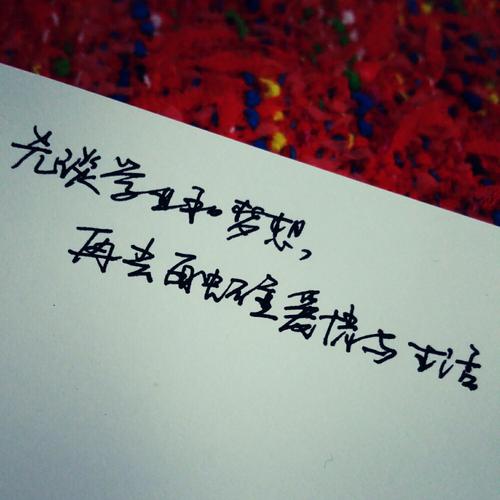 先谈学业和梦想,
再去 爱情与生活